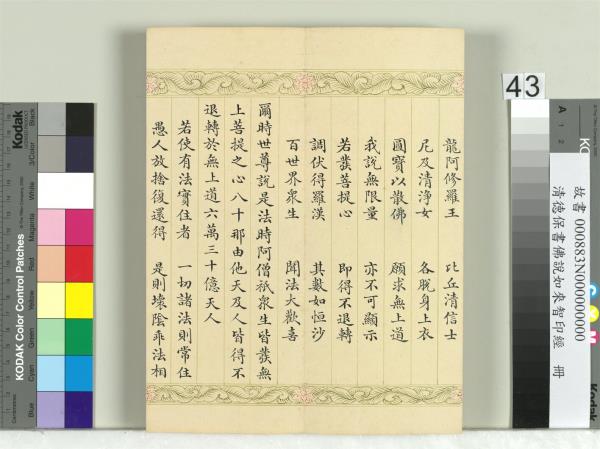 龍阿修羅王 比丘清信士
尼及清淨女 各脫身上衣
圓寶以散佛 願求無上道
我說無限量 亦不可顯示
若發菩提心 即得不退轉
調伏得羅漢 其數如恒沙
百世界衆生 聞法大歡喜
爾時世尊說是法時阿僧祇衆生皆發無
上菩提之心八十那由他天及人皆得不
退轉於無上道六萬三十億天人
若使有法實住者 一切諸法則常住
愚人放捨復還得 是則壞陰乖法相
43
故書 000883N000000000
清德保書佛說如來智印經 冊
KODAK Color Control Patches
Kodak
Black
3/Color
White
Magenta
Red
Yellow
Green
Cyan
Blue
A 1 2